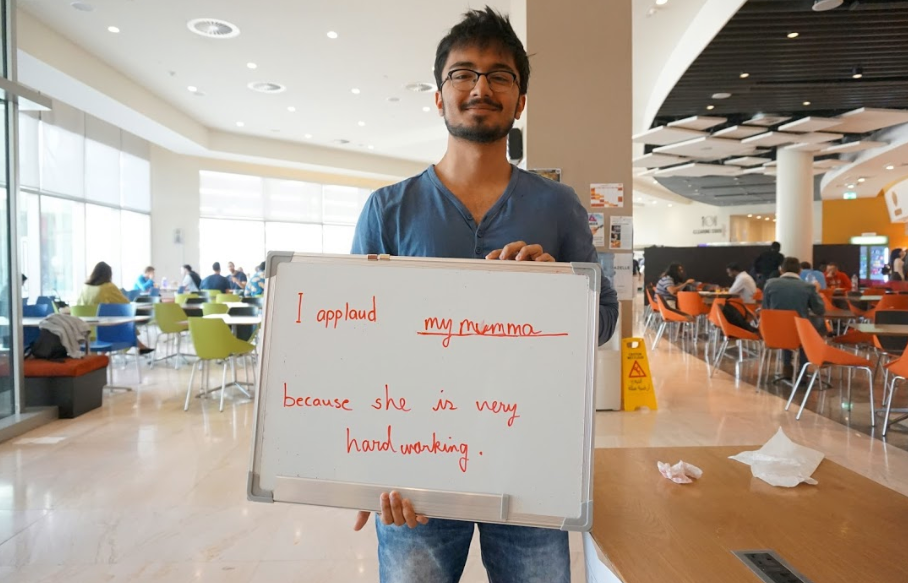 I applaud my mumma
because she is very
hardworking.